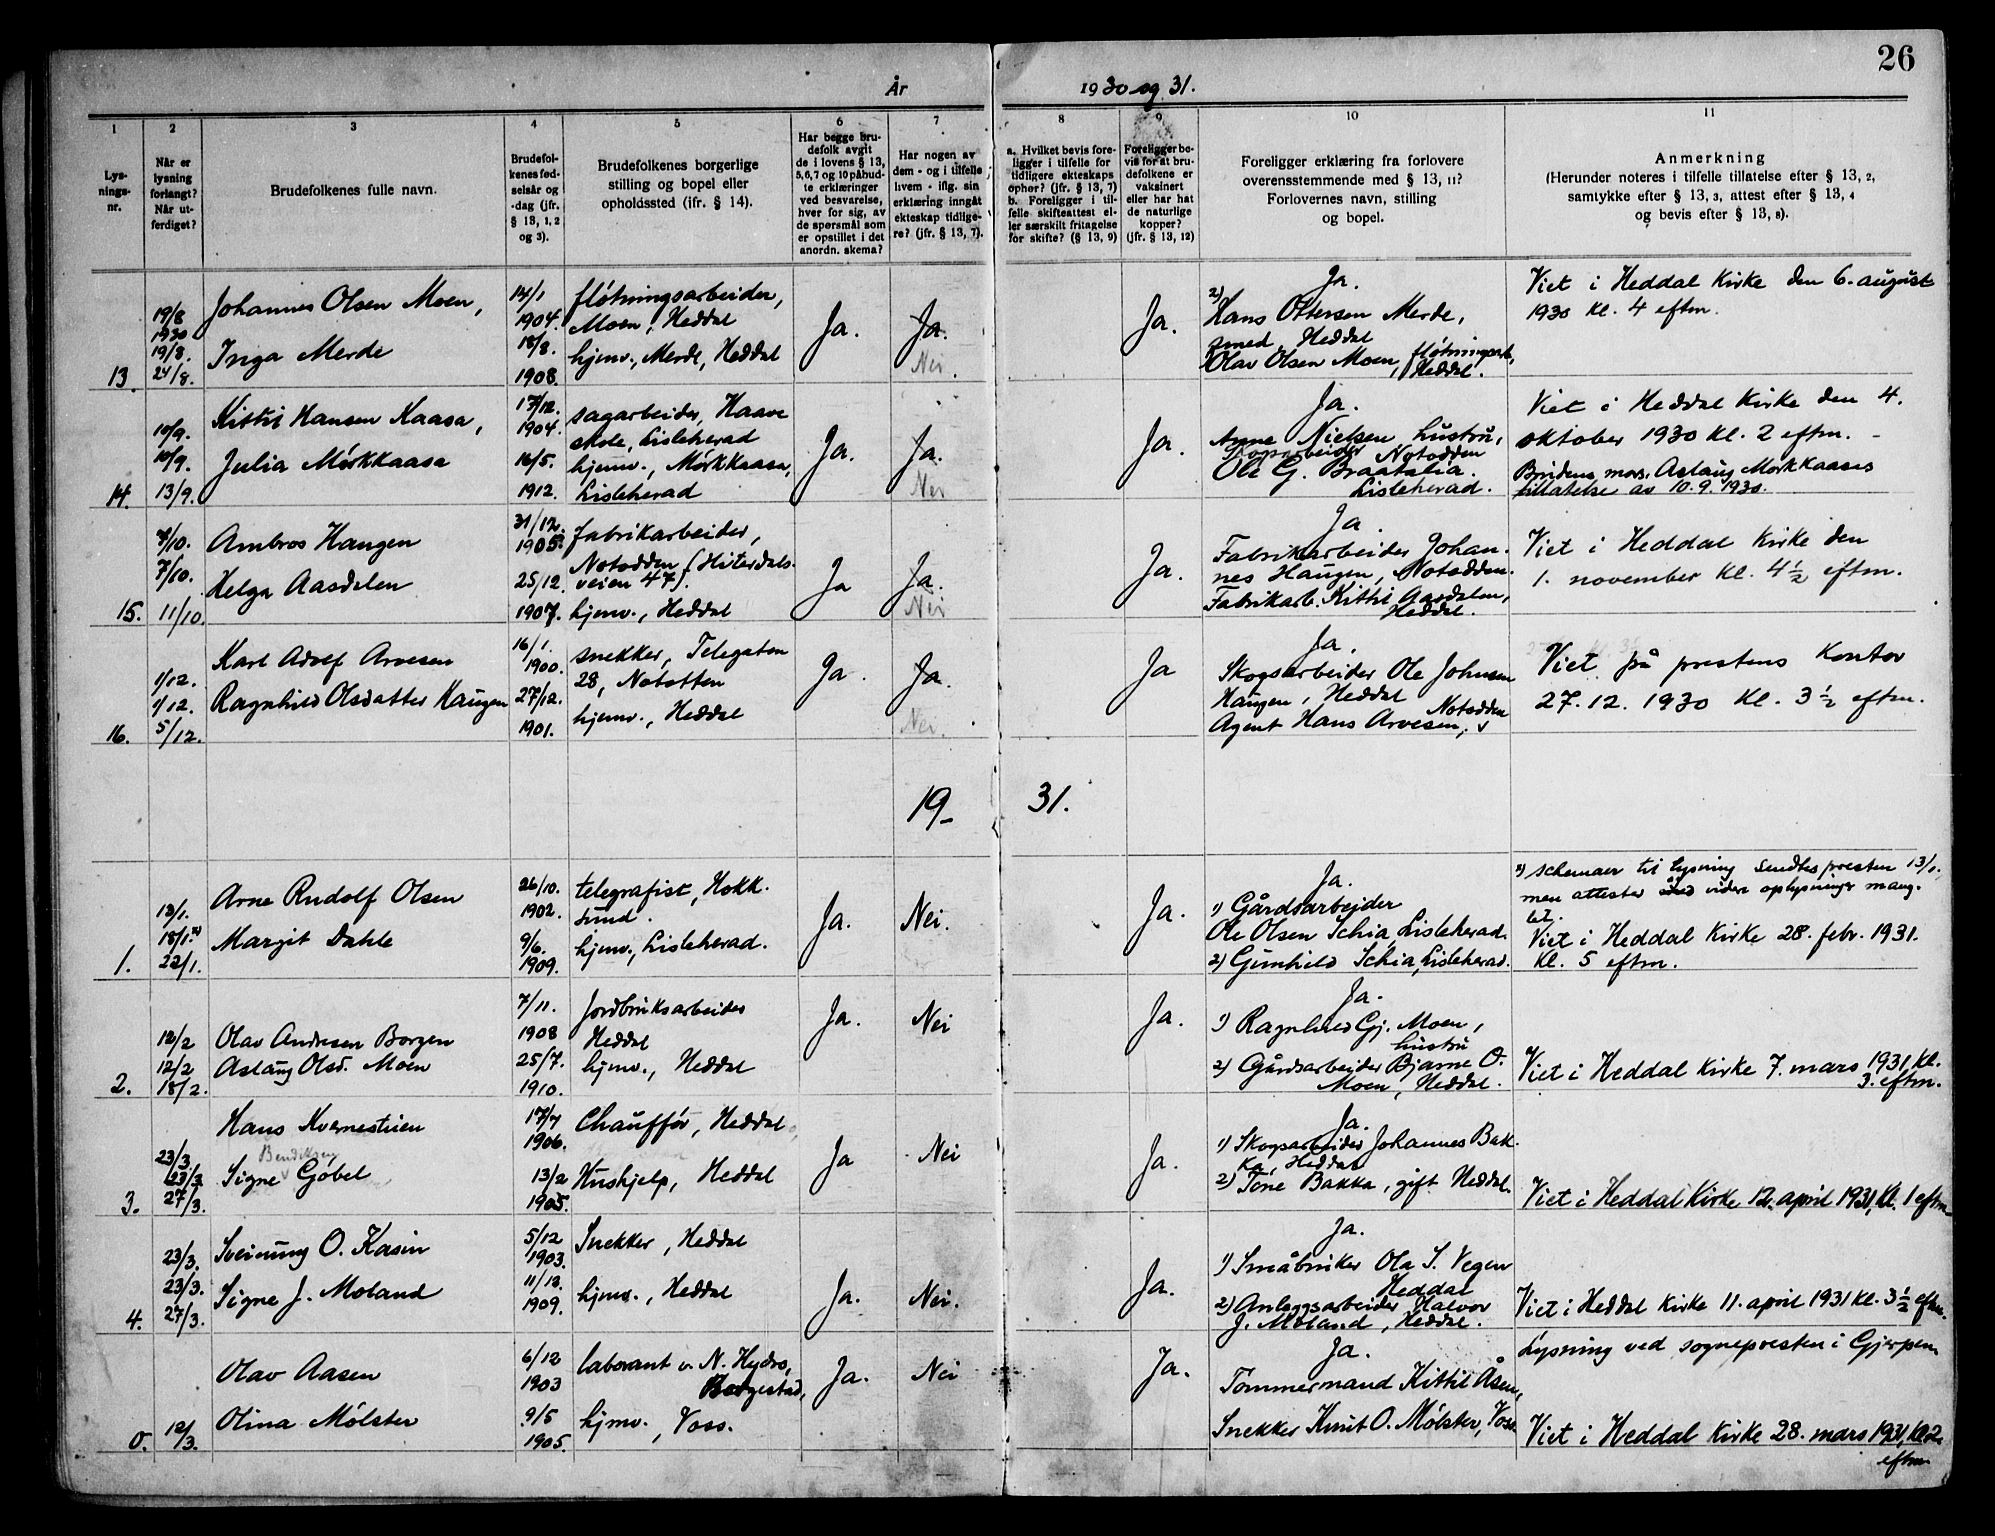 26
År 1930 og 31.
1 2 3 4 5 6 7 8 9 10 11
Lysningsnr.
Når er lysning forlangt? Når utferdiget?
Brudefolkenes fulle navn.
Brudefolkenes fødselsår og -dag (jfr. § 13, 1, 2 og 3).
Brudefolkenes borgerlige stilling og bopel eller opholdssted (ifr. § 14).
Har begge brudefolk avgit de i lovens § 13, 5,6,7 og 10 påbudte erklæringer ved besvarelse, hver for sig, av de spørsmål som er opstillet i det anordn. skema?
Har nogen av dem - og i tilfelle hvem - iflg. sin erklæring inngåt ekteskap tidligere? (jfr. § 13, 7).
a. Hvilket bevis foreligger i tilfelle for tidligere ekteskaps ophør? (jfr. § 13, 7) b. Foreligger i tilfelle skifteattest eller særskilt fritagelse for skifte? (§ 13, 9)
Foreligger bevis for at brudefolkene er vaksinert eller har hat de naturlige kopper? (jfr. § 13, 12)
Foreligger erklæring fra forlovere overensstemmende med § 13, 11? Forlovernes navn, stilling og bopel.
Anmerkning (Herunder noteres i tilfelle tillatelse efter § 13, 2, samtykke efter § 13, 3, attest efter § 13, 4 og bevis efter § 13, 8).
13.
19/8 1930
19/8.
24/8.
Johannes Olsen Moen,
Inga Merde
14/1 1904.
18/8. 1908.
fløtningsarbeider,
Moen, Heddal
hjemv., Merde, Heddal
Ja.
Ja.
Nei.
Ja.
Ja.
2) Hans Ottersen Merde,
smed, Heddal
Olav Olsen Moen, fløtningsarb,
Heddal.
Viet i Heddal Kirke den 6. august
1930 kl. 4 eftm.
14.
10/9.
10/9.
13/9.
Kittil Hansen Kaasa,
Julia Mørkkaasa
17/12. 1904.
16/5. 1912.
sagarbeider, Haave
skole, Lisleherad
hjemv., Mørkkaasa,
Lisleherad
Ja.
Ja.
Nei
Ja.
Ja.
Anne Nielsen, hustru,
Notodden
Skogsarbeider
Ole G. Braatalia.
Lisleherad.
Viet i Heddal Kirke den 4.
oktober 1930 kl. 2 eftm. -
Brudens mors, Aslaug Mørkkaases
tillatelse av 10.9.1930.
15.
7/10.
7/10.
11/10.
Ambros Haugen
Helga Aasdalen
31/12. 1905.
25/12. 1907.
fabrikarbeider,
Notodden (Hiterdals-
veien 47).
hjemv., Heddal
Ja
Ja.
Nei
Ja.
Ja
Fabrikarbeider Johan-
nes Haugen, Notodden.
Fabrikarb. Kittil Aasdalen,
Heddal.
Viet i Heddal Kirke den
1. november kl. 4½ eftm.
16.
1/12.
1/12.
5/12.
Karl Adolf Arvesen
Ragnhild Olsdatter Haugen
16/1. 1900.
27/12. 1901.
snekker, Telegaten
28, Notodden
hjemv., Heddal
Ja.
Ja.
Nei.
Ja
Ja,
Skogsarbeider Ole Johnsen
Haugen, Heddal
Notodden
Agent Hans Arvesen,
Viet på prestens kontor
27.12. 1930 kl. 3½ eftm.
19- 31.
1.
13/1.
18/1. x)
22/1.
Arne Rudolf Olsen
Margit Dahle
26/10. 1902.
9/6. 1909.
telegrafist, Hokk-
sund.
hjemv., Lisleherad.
Ja.
Nei.
Ja.
Ja.
1) Gårdsarbeider
Ole Olsen Schia, Lisleherad.
2) Gunhild Schia, Lisleherad.
x) schemaer til lysning sendtes presten 13/1.
men attester og videre oplysninger mang-
let.
Viet i Heddal Kirke 28. febr. 1931.
kl. 5 eftm.
2.
12/2
12/2
18/2.
Olav Andresen Borgen
Aslaug Olsd. Moen
7/11. 1908
25/7. 1910.
Jordbruksarbeider
Heddal
hjemv., Heddal
Ja.
Nei
Ja.
Ja.
1) Ragnhild Gj. Moen,
hustru
2) Gårdsarbeider Bjarne O.
Moen, Heddal.
Viet i Heddal Kirke 7. mars 1931, kl.
3. eftm.
3.
23/3.
23/3
27/3.
Hans Kvernestuen
Bendiksen
Signe Gøbel
17/7 1906.
13/2 1905.
Chauffør, Heddal
Hushjelp, Heddal
Ja
Nei
Ja.
Ja.
1) Skogsarbeider Johannes Bak-
ka, Heddal
2) Tone Bakka, gift Heddal.
Viet i Heddal Kirke 12. april 1931, kl. 1 eftm
4.
23/3.
23/3.
27/3.
Sveinung O. Kasin
Signe J. Moland
5/12 1903.
11/12. 1909.
Snekker, Heddal
hjemv., Heddal
Ja.
Nei.
Ja.
Ja.
1) Småbruker Ola S. Vegen
Heddal
2) Anleggsarbeider Halvor
J. Moland, Heddal.
Viet i Heddal Kirke 11. april 1931 kl. 3½ eftm.
0.
12/3.
Olav Aasen
Olina Mølster
6/12 1903
9/5 1905.
laborant v. N. Hydro,
Borgestad,
hjmv., Voss.
Ja.
Nei
Ja.
Ja.
Tømmermand Kittil Åsen,
Snekker Knut O. Mølster, Voss.
Lysning ved sognepresten i Gjerpen
Viet i Heddal Kirke 28. mars 1931, kl 2
eftm